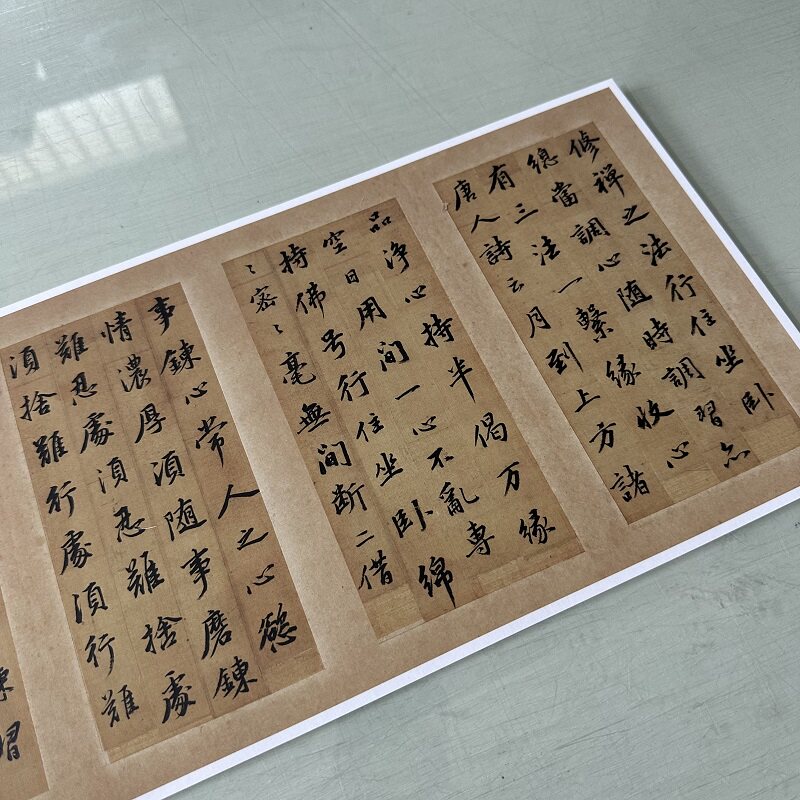 修禪之法行住坐卧
總當調心随時調習亦
有三法一繫緣收心
唐人詩云月到上方諸
品淨心持半偈万緣
空日用間一心不亂專
持佛号行住坐卧綿
〻密〻毫無間断二借
事鍊心常人之心慾
情濃厚湏随事磨鍊
難忍處湏忍難捨處
湏捨難行處湏行難
習